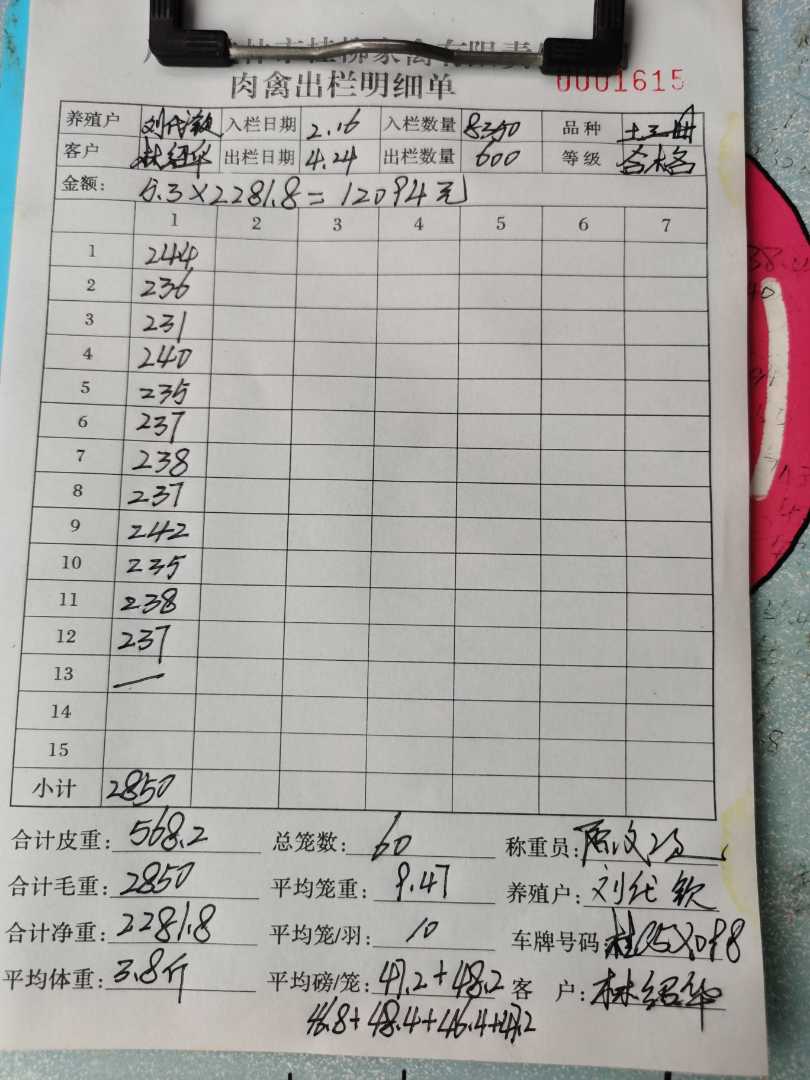 林市桂柳家禽有限责
肉禽出栏明细单 0001615
养殖户 刘代钦 入栏日期 2.16 入栏数量 8350 品种
客户 林绍华 出栏日期 4.24 出栏数量 600 等级 合格
金额: 5.3×2281.8=12094元
1 2 3 4 5 6 7
1 244
2 236
3 231
4 240
5 235
6 237
7 238
8 237
9 242
10 235
11 238
12 237
13 —
14
15
小计 2850
合计皮重: 568.2 总笼数: 60 称重员:
合计毛重: 2850 平均笼重: 9.47 养殖户: 刘代钦
合计净重: 2281.8 平均笼/羽: 10 车牌号码:
平均体重: 3.8斤 平均磅/笼: 47.2+48.2 客 户: 林绍华
46.8+48.4+46.4+47.2